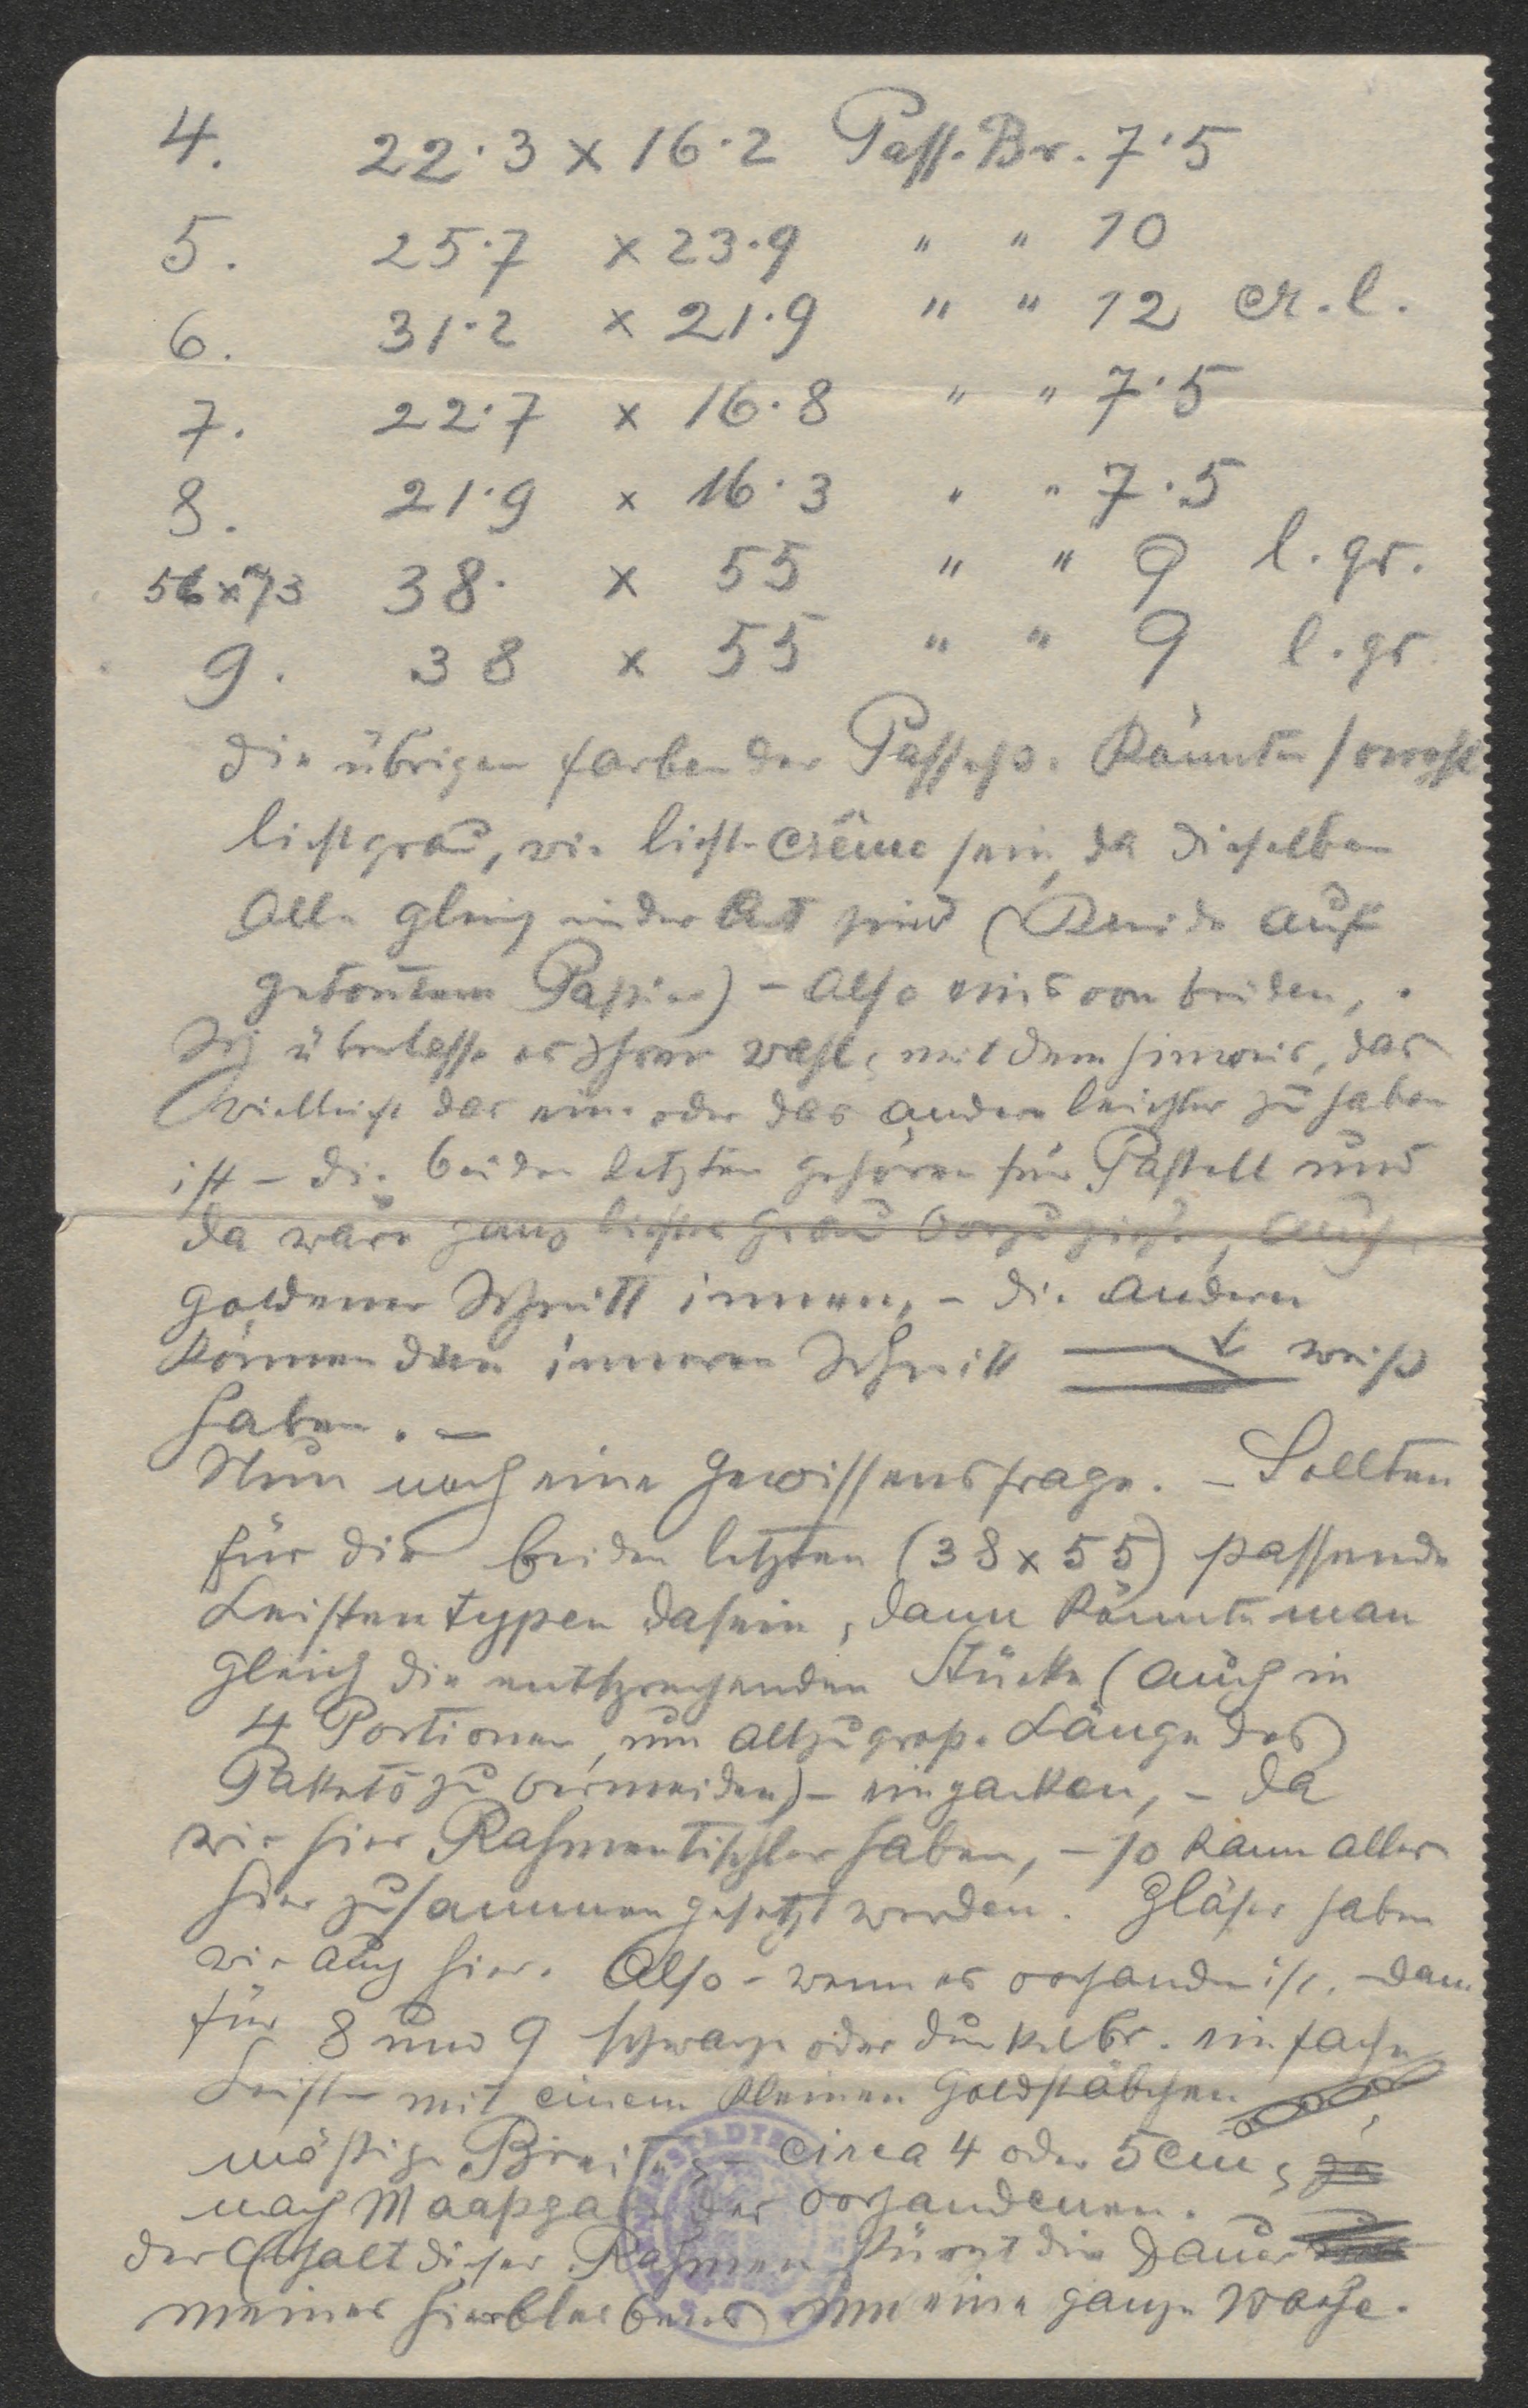 4. 22·3 x 16·2 Pass. Br. 7·5
5. 25·7 x 23·9 " " 10
6. 31·2 x 21·9 " " 12 cr. l.
7. 22·7 x 16·8 " " 7·5
8. 21·9 x 16·3 " " 7·5
56 x 73 38· x 55 " " 9 l. gr.
9. 38 x 55 " " 9 l. gr.
die übrigen Farben der Passep. könnten sowohl
lichtgrau, wie licht-crême sein, da dieselben
alle gleich in der Art sind (Kreide auf
getöntem Papier) – also eins von beiden,
Ich überlasse es Ihrer Wahl, mit dem Hinweis, das
vielleicht das eine oder das andere leichter zu haben
ist – die beiden letzten gehören für Pastell und
da wäre ganz lichtes Grau vorzuziehen, auch
goldener Schnitt innen, – die andern
können den inneren Schnitt weiß
haben. –
Nun noch eine Gewissensfrage. – Sollten
für die beiden letzten (38 x 55) passende
Leistentypen dasein, dann könnte man
gleich die entsprechenden Stücke (auch in
4 Portionen, um allzugroße Länge des
Pakets zu vermeiden) – einpacken, – da
wir hier Rahmentischler haben, – so kann alles
hier zusammengesetzt werden. Gläser haben
wir auch hier. Also – wenn es vorhanden ist, – dann
für 8 und 9 schwarze oder dunkelbr. einfache
Leisten mit einem kleinen Goldstäbchen
mäßige Breite – circa 4 oder 5 cm,
nach Maaßgabe der vorhandenen.
der Erhalt dieser Rahmen kürzt die Dauer
meines Hierbleibens um eine ganze Woche.